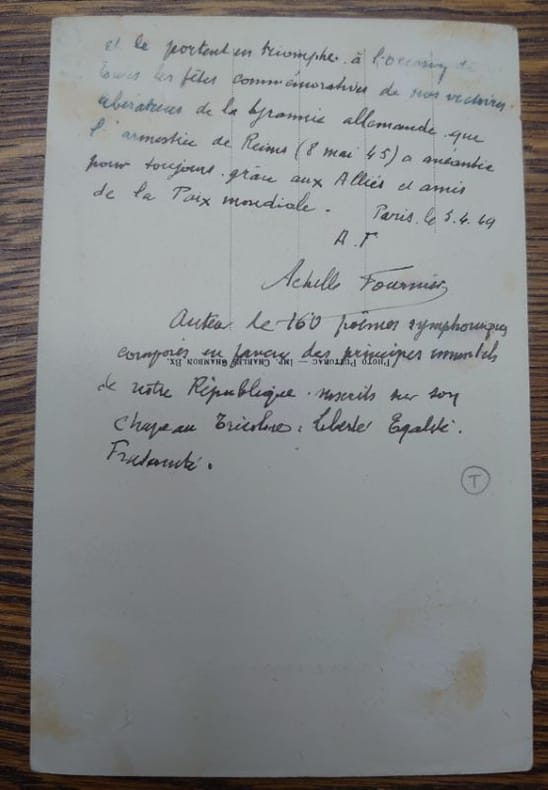 et le portent en triomphe. à l'occasion de
toutes les fêtes commémoratives de nos victoires
libératrices de la tyrannie allemande que
l'armistice de Reims (8 mai 45) a anéantie
pour toujours. grâce aux Alliés et amis
de la Paix mondiale. Paris. le 5.4.69
A. F
Achille Fournier
Auteur de 160 poëmes symphoniques
composés en faveur des principes immortels
PHOTO PUYTORAC — IMP. CHARLES CHAMBON BX.
de notre République. inscrits sur son
chapeau tricolore: Liberté Egalité.
Fraternité.
T